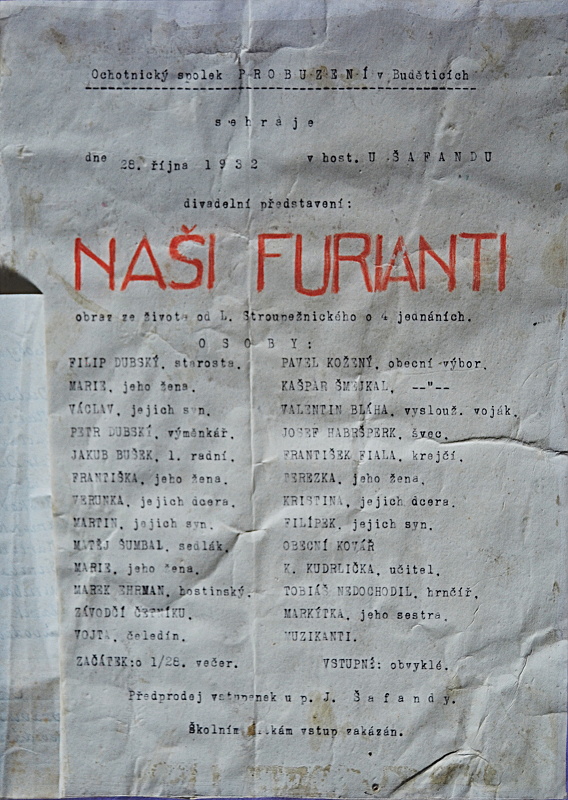 Ochotnický spolek PROBUZENÍ v Buděticích
sehráje
dne 28. října 1932 v host. U ŠAFANDU
divadelní představení:
NAŠI FURIANTI
obraz ze života od L. Stroupežnického o 4 jednáních.
OSOBY:
FILIP DUBSKÝ, starosta.
MARIE, jeho žena.
VÁCLAV, jejich syn.
PETR DUBSKÍ, výměnkář.
JAKUB BUŠEK, 1. radní.
FRANTIŠKA, jeho žena.
VERUNKA, jejich dcera.
MARTIN, jejich syn.
MATĚJ ŠUMBAL, sedlák.
MARIE, jeho žena.
MAREK EHRMAN, hostinský.
ZÁVODČÍ ČETNÍKU.
VOJTA, čeledín.
PAVEL KOŽENÝ, obecní výbor.
KAŠPAR ŠMEJKAL, --"--
VALENTIN BLÁHA, vyslouž. voják.
JOSEF HABRŠPERK, švec.
FRANTIŠEK FIALA, krejčí.
TEREZKA, jeho žena.
KRISTINA, jejich dcera.
FILÍPEK, jejich syn.
OBECNÍ KOVÁŘ
K. KUDRLIČKA, učitel.
TOBIÁŠ NEDOCHODIL, hrnčíř.
MARKÍTKA, jeho sestra.
MUZIKANTI.
ZAČÁTEK:o 1/28. večer. VSTUPNÍ: obvyklé.
Předprodej vstupenek u p. J. Šafandy.
Školním vstup zakázán.